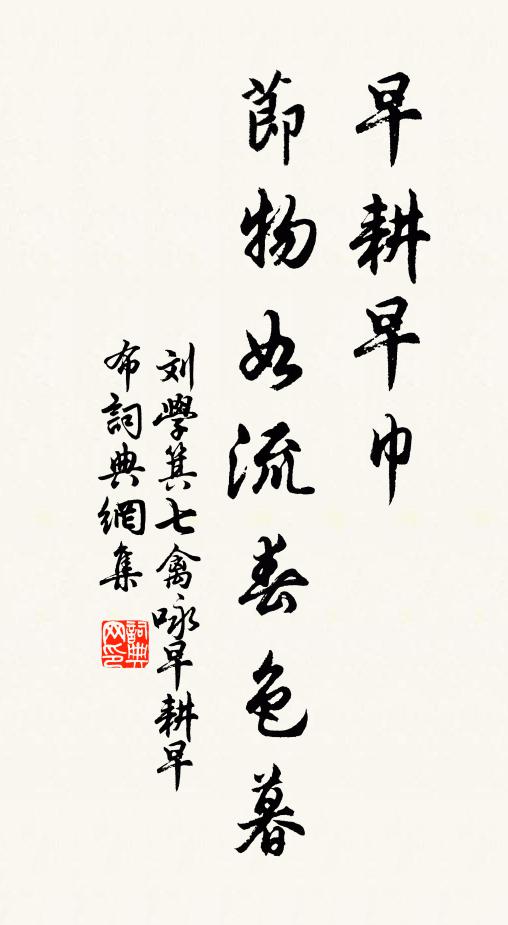 早耕早巾
莭物如流春色暮
刘學箕七禽咏早耕早
布詞典網集
詞典
网印